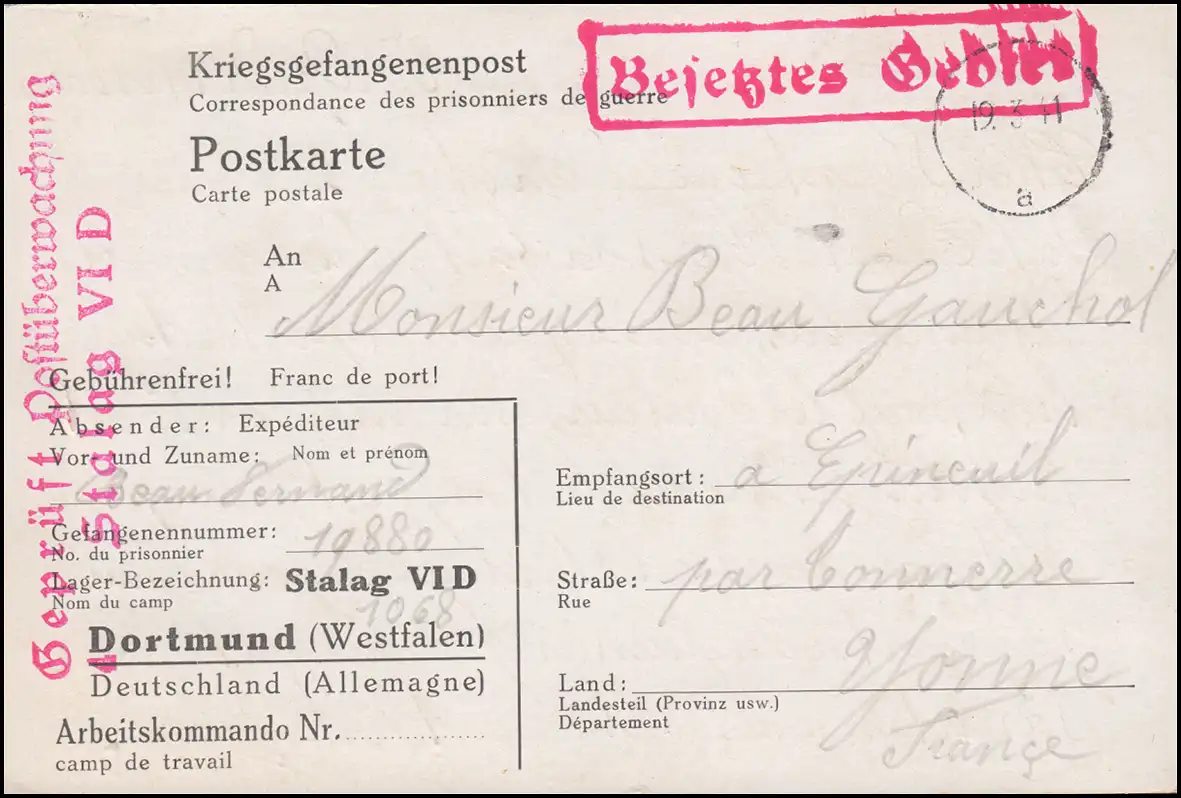 Kriegsgefangenenpost
Correspondance des prisonniers de guerre
Besetztes Gebiet
19. 3 41
a
Postkarte
Carte postale
An
A
Monsieur Beau Gauchol
Gebührenfrei! Franc de port!
Absender: Expéditeur
Vor- und Zuname: Nom et prénom
Beau Fernand
Gefangenennummer:
No. du prisonnier
19880
Lager-Bezeichnung: Stalag VI D
Nom du camp
1068
Dortmund (Westfalen)
Deutschland (Allemagne)
Arbeitskommando Nr.
camp de travail
Empfangsort: a Epineuil
Lieu de destination
Straße: par Tonnerre
Rue
Yonne
Land:
Landesteil (Provinz usw.)
Département
France
Geprüft Postüberwachung
Stalag VI D